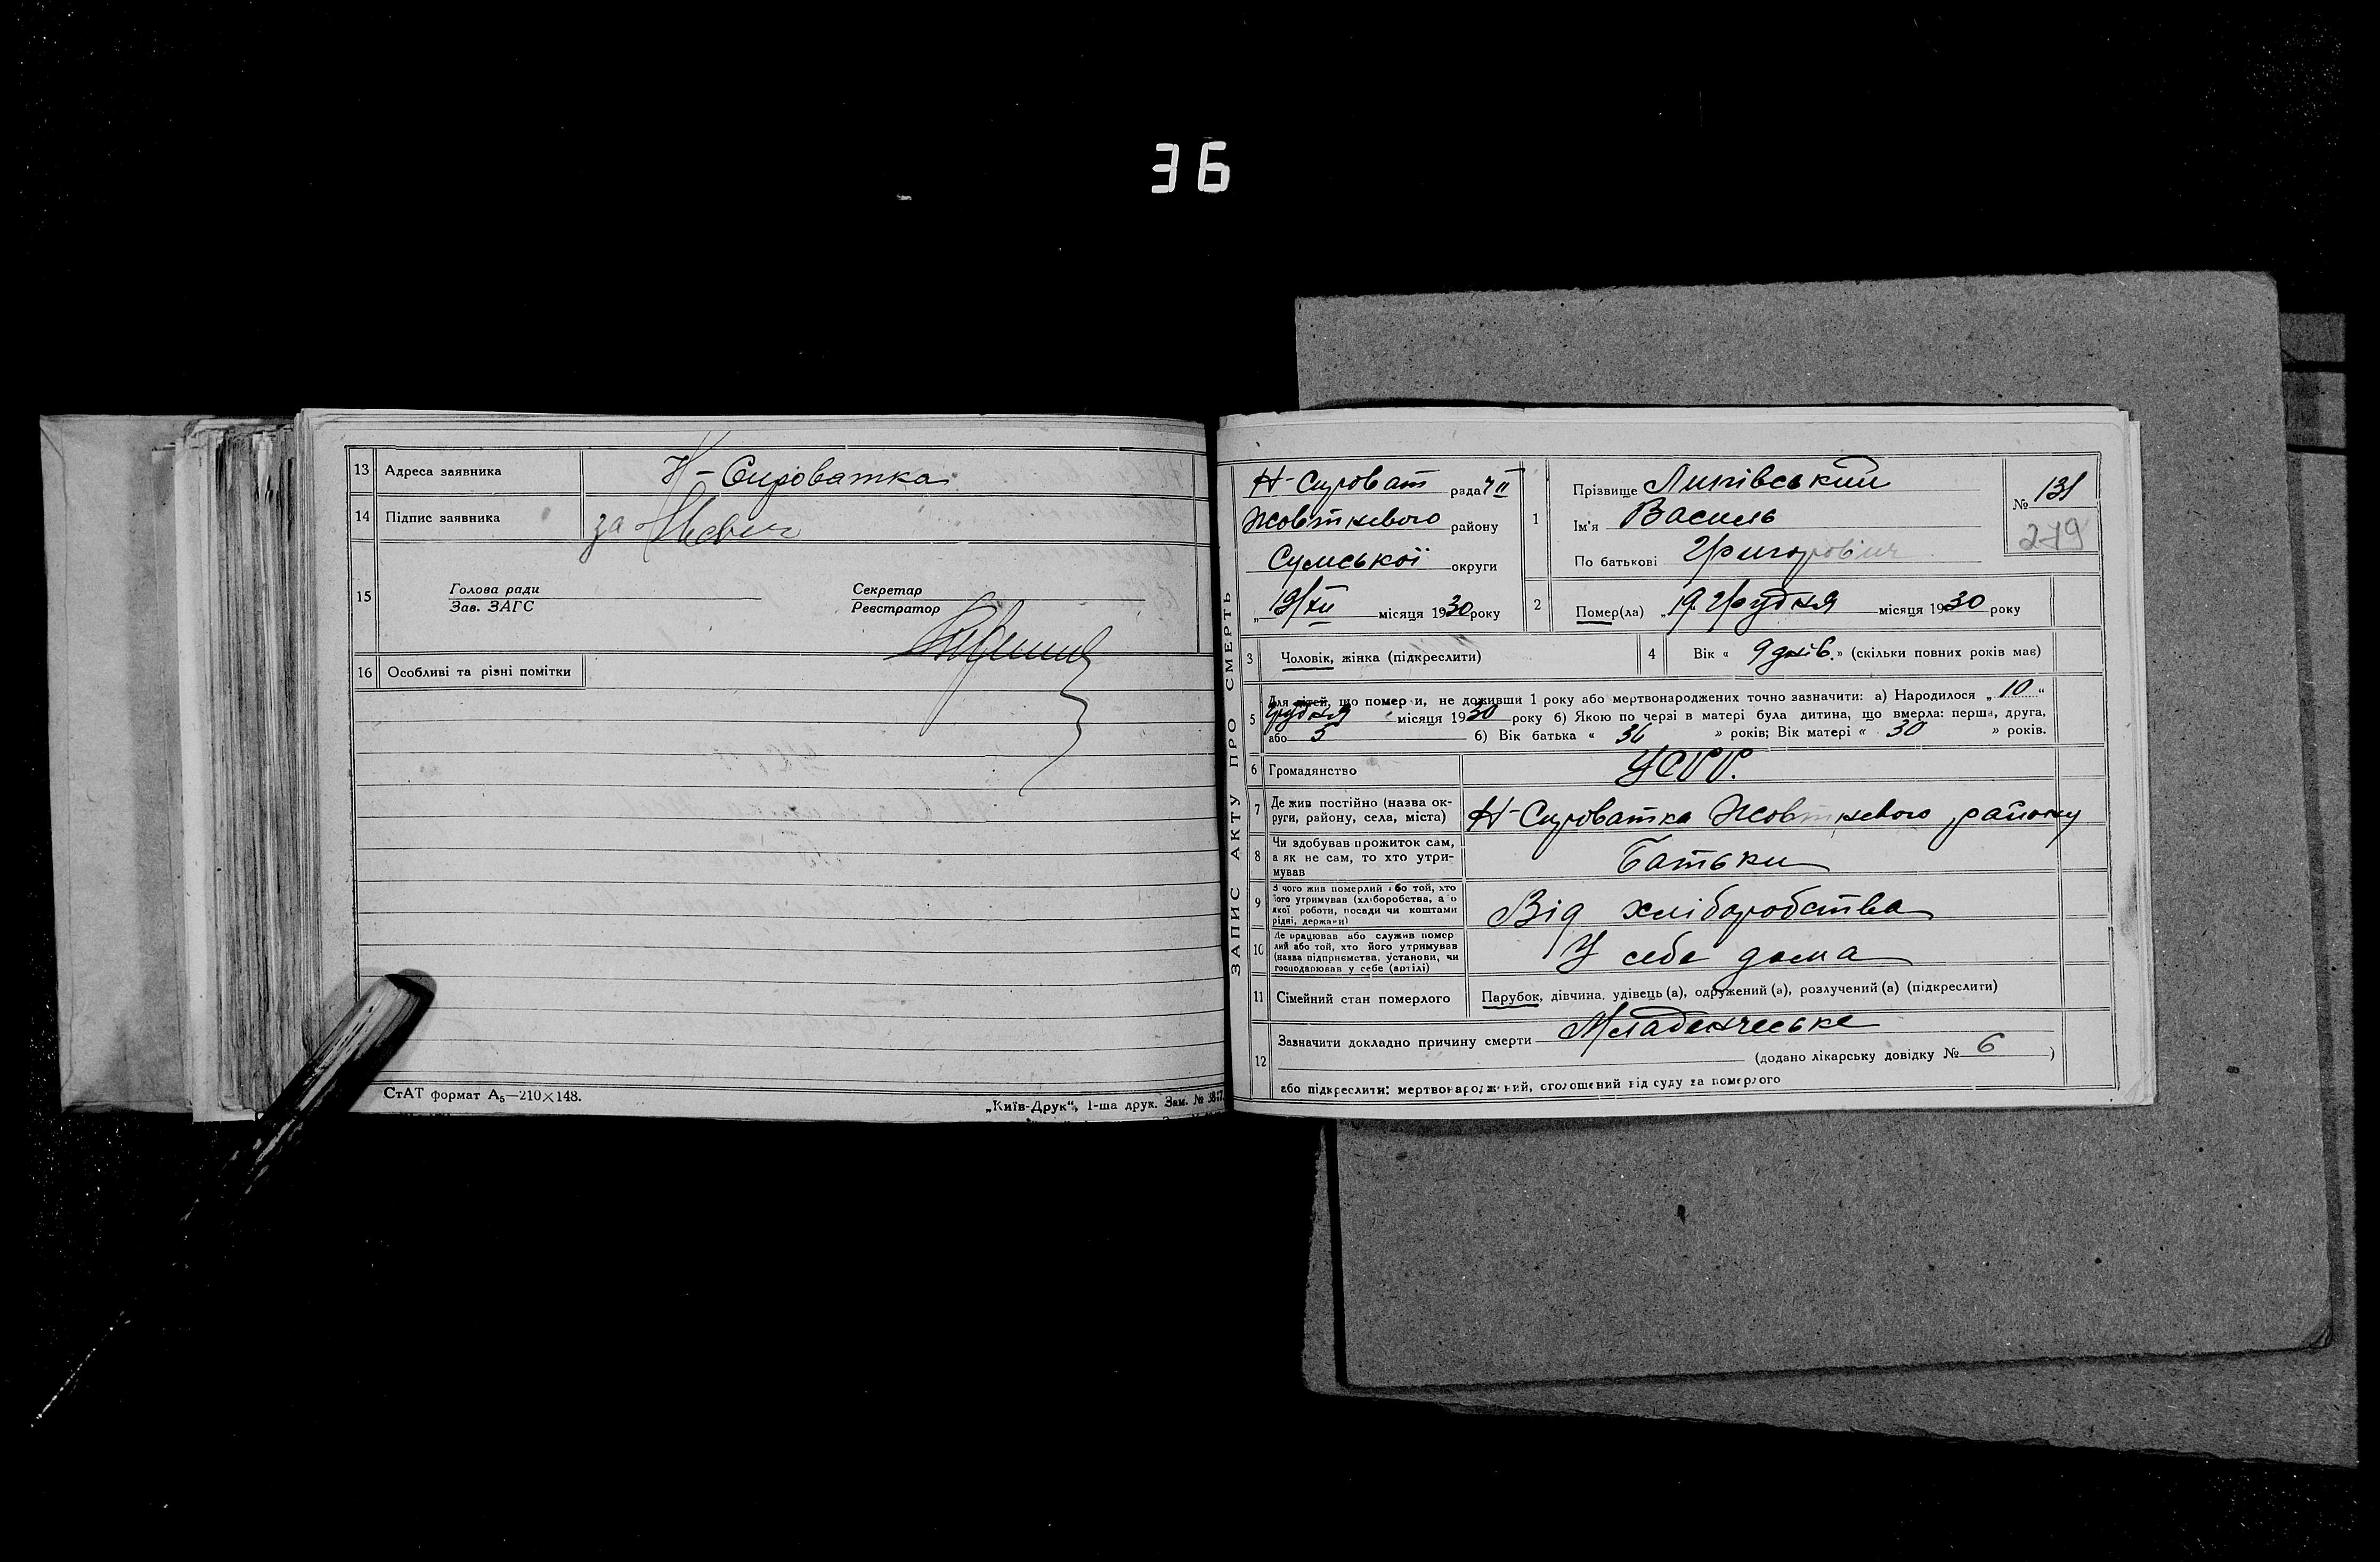 36
13 Адреса заявника Н-Сироватка
14 Підпис заявника за
15 Голова ради Секретар
Зав. ЗАГС Реєстратор
16 Особливі та різні помітки
СтАТ формат А₅—210×148.
„Київ-Друк“, 1-ша друк. Зам. №
ЗАПИС АКТУ ПРО СМЕРТЬ
Н-Суроват рада ч II
Жовтневого району
Сумської округи
„ 19/XII місяця 1930 року
1 Прізвище Липівський
Ім'я Василь
По батькові Григоровіч
№ 131
279
2 Помер(ла) „19 Грудня місяця 1930 року
3 Чоловік, жінка (підкреслити)
4 Вік « 9 днів. » (скільки повних років має)
5 Для дітей, що помер и, не доживши 1 року або мертвонароджених точно зазначити: а) Народилося „ 10 “
Грудня місяця 1930 року б) Якою по черзі в матері була дитина, що вмерла: перша, друга,
або 5 б) Вік батька « 36 » років; Вік матері « 30 » років.
6 Громадянство УСРР.
7 Де жив постійно (назва ок-
руги, району, села, міста) Н-Суроватка Жовтневого району
8 Чи здобував прожиток сам,
а як не сам, то хто утри-
мував Батьки
9 З чого жив померлий або той, хто
його утримував (хліборобства, а о
якої роботи, посади чи коштами
рідні, держави) Від хліборобства
10 Де працював або служив помер
лий або той, хто його утримував
(назва підприємства, установи, чи
господарював у себе (артілі) У себе дома
11 Сімейний стан померлого Парубок, дівчина, удівець (а), одружений (а), розлучений (а) (підкреслити)
12 Зазначити докладно причину смерти Младенчеське
(додано лікарську довідку № 6 )
або підкреслити: мертвонароджений, оголошений від суду за померлого